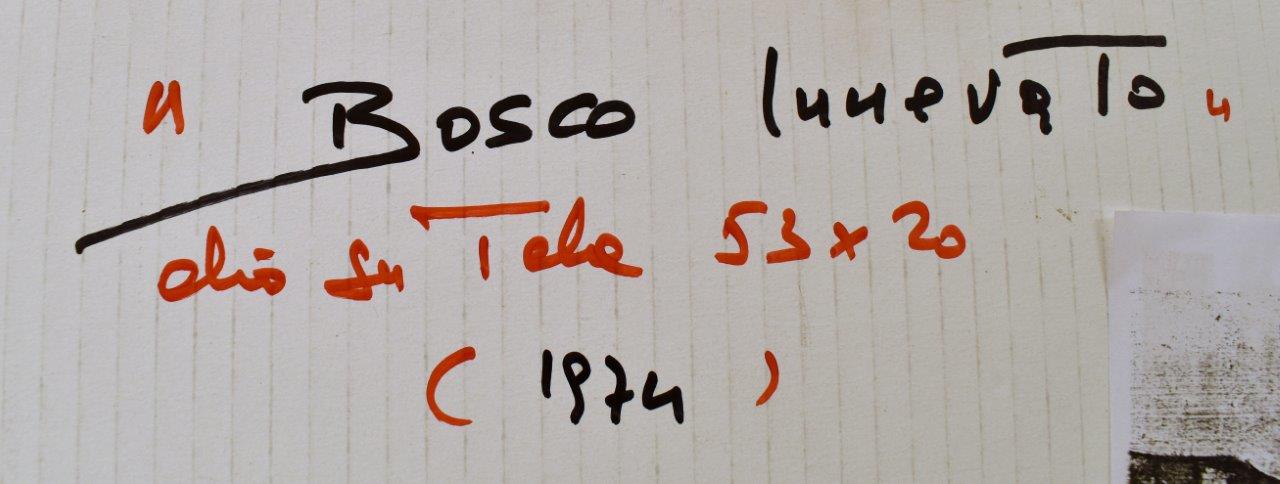 " Bosco Innevato "
olio su Tela 53 x 20
( 1974 )